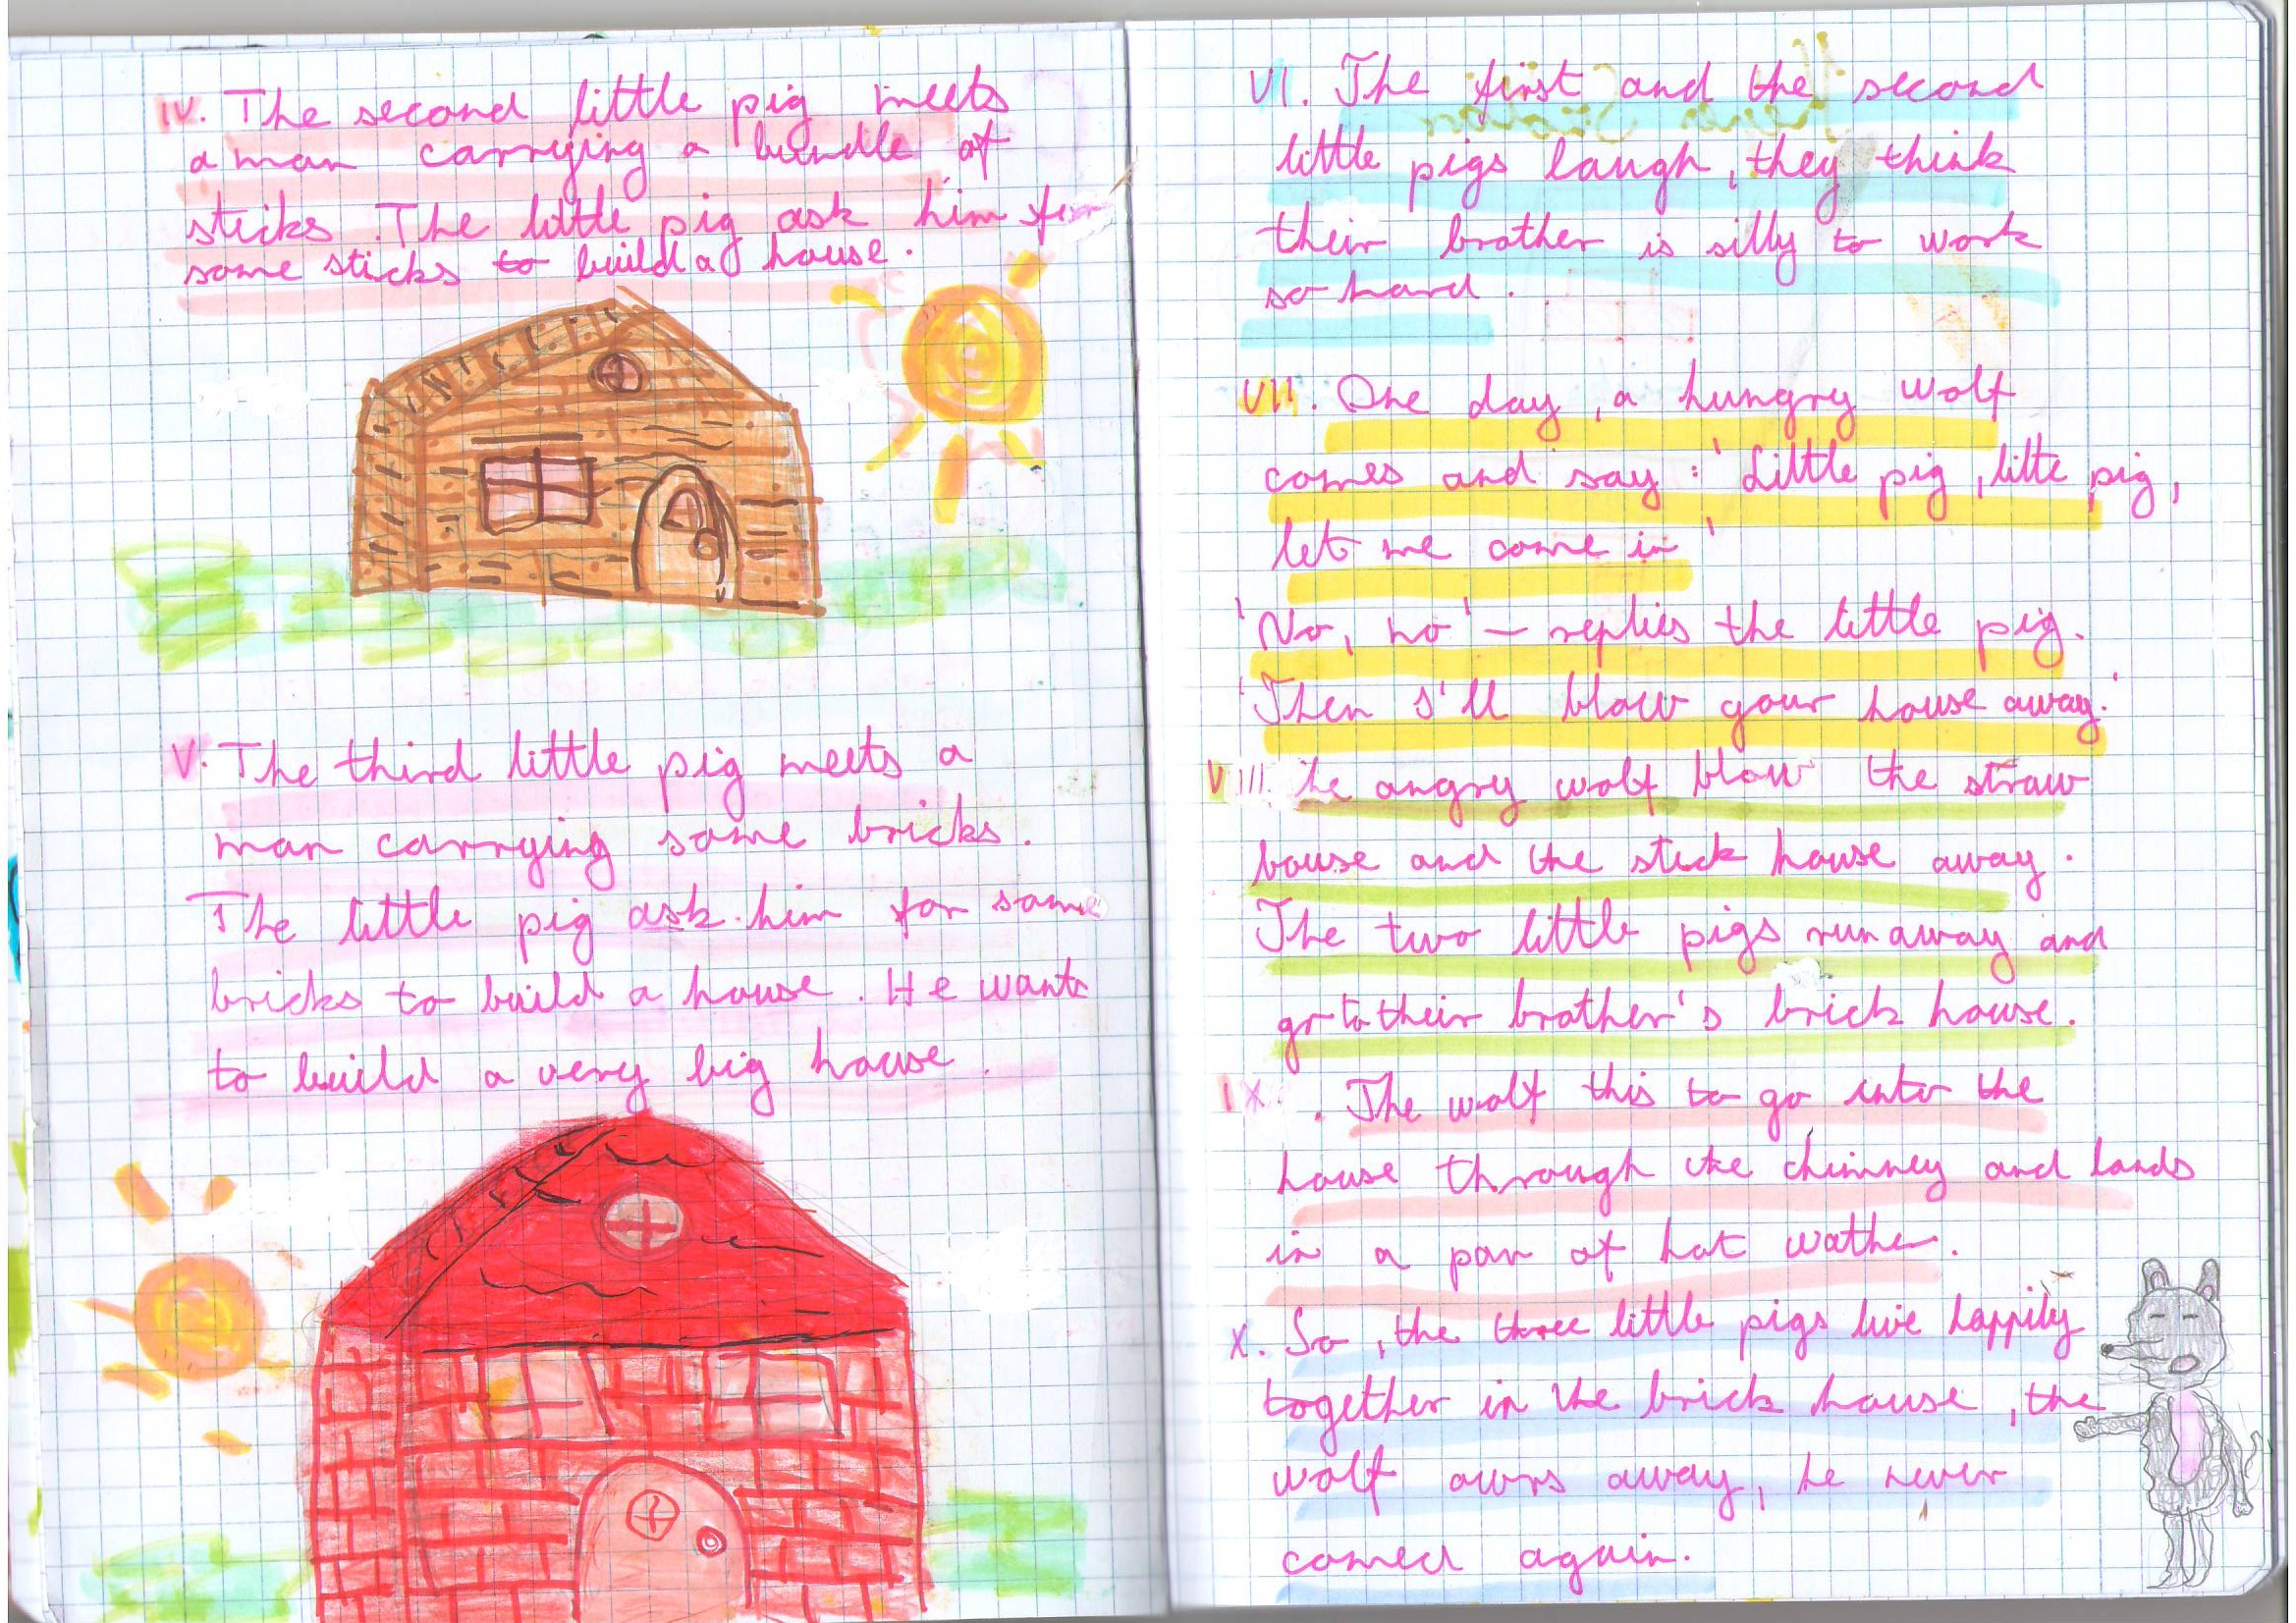 IV. The second little pig meets
a man carrying a bundle of
sticks. The little pig ask him for
some sticks to build a house.
V. The third little pig meets a
man carrying some bricks.
The little pig ask him for some
bricks to build a house. He wants
to build a very big house.
VI. The first and the second
little pigs laugh, they think
their brother is silly to work
so hard.
VII. One day, a hungry wolf
comes and say: 'Little pig, litte pig,
let me come in'
'No, no' – replies the little pig.
'Then I'll blow your house away.'
VIII. The angry wolf blow the straw
house and the stick house away.
The two little pigs run away and
go to their brother's brick house.
IX. The wolf this to go into the
house through the chimney and lands
in a pan of hot wather.
X. So, the three little pigs live happily
together in the brick house, the
wolf away, he never
again.